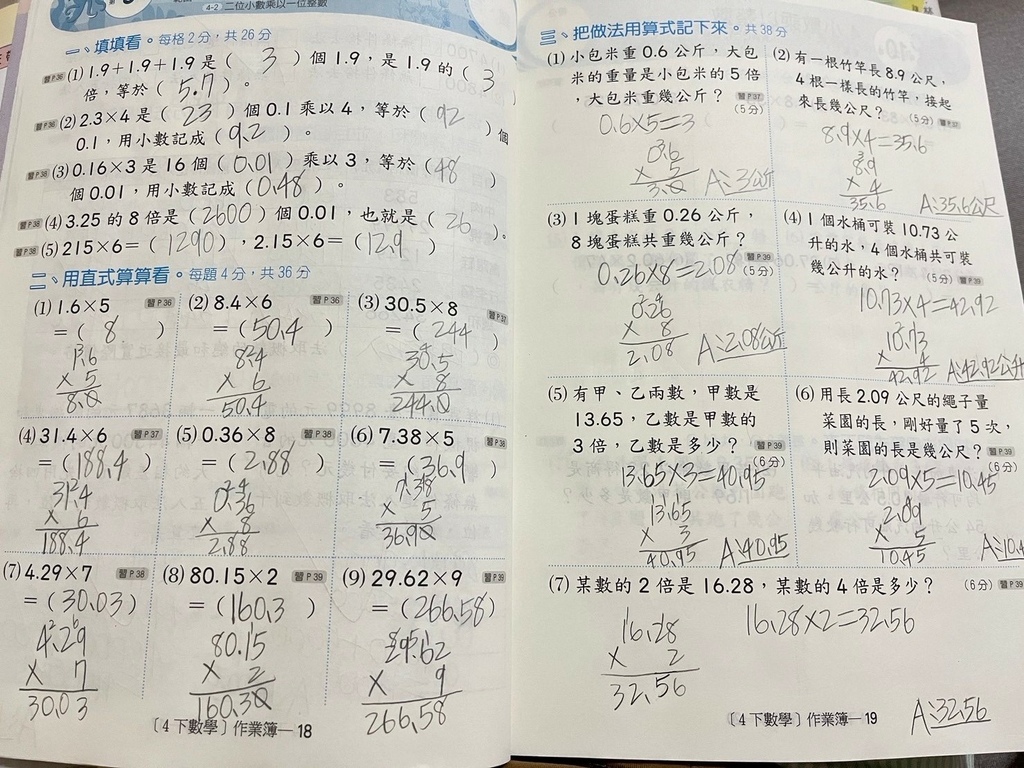 4-2 二位小數乘以一位整數
一、填填看。每格2分，共26分
習P36 (1) 1.9+1.9+1.9是( 3 )個1.9，是1.9的( 3
倍，等於( 5.7 )。
習P36 (2) 2.3×4是( 23 )個0.1乘以4，等於( 92 )個
0.1，用小數記成( 9.2 )。
習P38 (3) 0.16×3是16個( 0.01 )乘以3，等於( 48 )
個0.01，用小數記成( 0.48 )。
習P38 (4) 3.25的8倍是( 2600 )個0.01，也就是( 26 )。
習P38 (5) 215×6=( 1290 )，2.15×6=( 12.9 )
二、用直式算算看。每題4分，共36分
(1) 1.6×5 習P36
=( 8 )
1.6
× 5
8.0
(2) 8.4×6 習P36
=( 50.4 )
8.4
× 6
50.4
(3) 30.5×8 習P37
=( 244 )
30.5
× 8
244.0
(4) 31.4×6 習P37
=( 188.4 )
31.4
× 6
188.4
(5) 0.36×8 習P38
=( 2.88 )
0.36
× 8
2.88
(6) 7.38×5 習P38
=( 36.9 )
7.38
× 5
36.90
(7) 4.29×7 習P38
=( 30.03 )
4.29
× 7
30.03
(8) 80.15×2 習P39
=( 160.3 )
80.15
× 2
160.30
(9) 29.62×9 習P39
=( 266.58 )
29.62
× 9
266.58
〔4下數學〕作業簿—18
三、把做法用算式記下來。共38分
(1) 小包米重0.6公斤，大包
米的重量是小包米的5倍
，大包米重幾公斤？ 習P37
(5分)
0.6×5=3
0.6
× 5
3.0
A:3公斤
(2) 有一根竹竿長8.9公尺，
4根一樣長的竹竿，接起
來長幾公尺？ (5分) 習P37
8.9×4=35.6
8.9
× 4
35.6
A:35.6公尺
(3) 1塊蛋糕重0.26公斤，
8塊蛋糕共重幾公斤？
習P39
(5分)
0.26×8=2.08
0.26
× 8
2.08
A:2.08公斤
(4) 1個水桶可裝10.73公
升的水，4個水桶共可裝
幾公升的水？ (5分) 習P39
10.73×4=42.92
10.73
× 4
42.92
A:42.92公升
(5) 有甲、乙兩數，甲數是
13.65，乙數是甲數的
3倍，乙數是多少？ 習P39
(6分)
13.65×3=40.95
13.65
× 3
40.95
A:40.95
(6) 用長2.09公尺的繩子量
菜園的長，剛好量了5次，
則菜園的長是幾公尺？ 習P39
(6分)
2.09×5=10.45
2.09
× 5
10.45
A:10.4
(7) 某數的2倍是16.28，某數的4倍是多少？ (6分) 習P39
16.28×2=32.56
16.28
× 2
32.56
A:32.56
〔4下數學〕作業簿—19